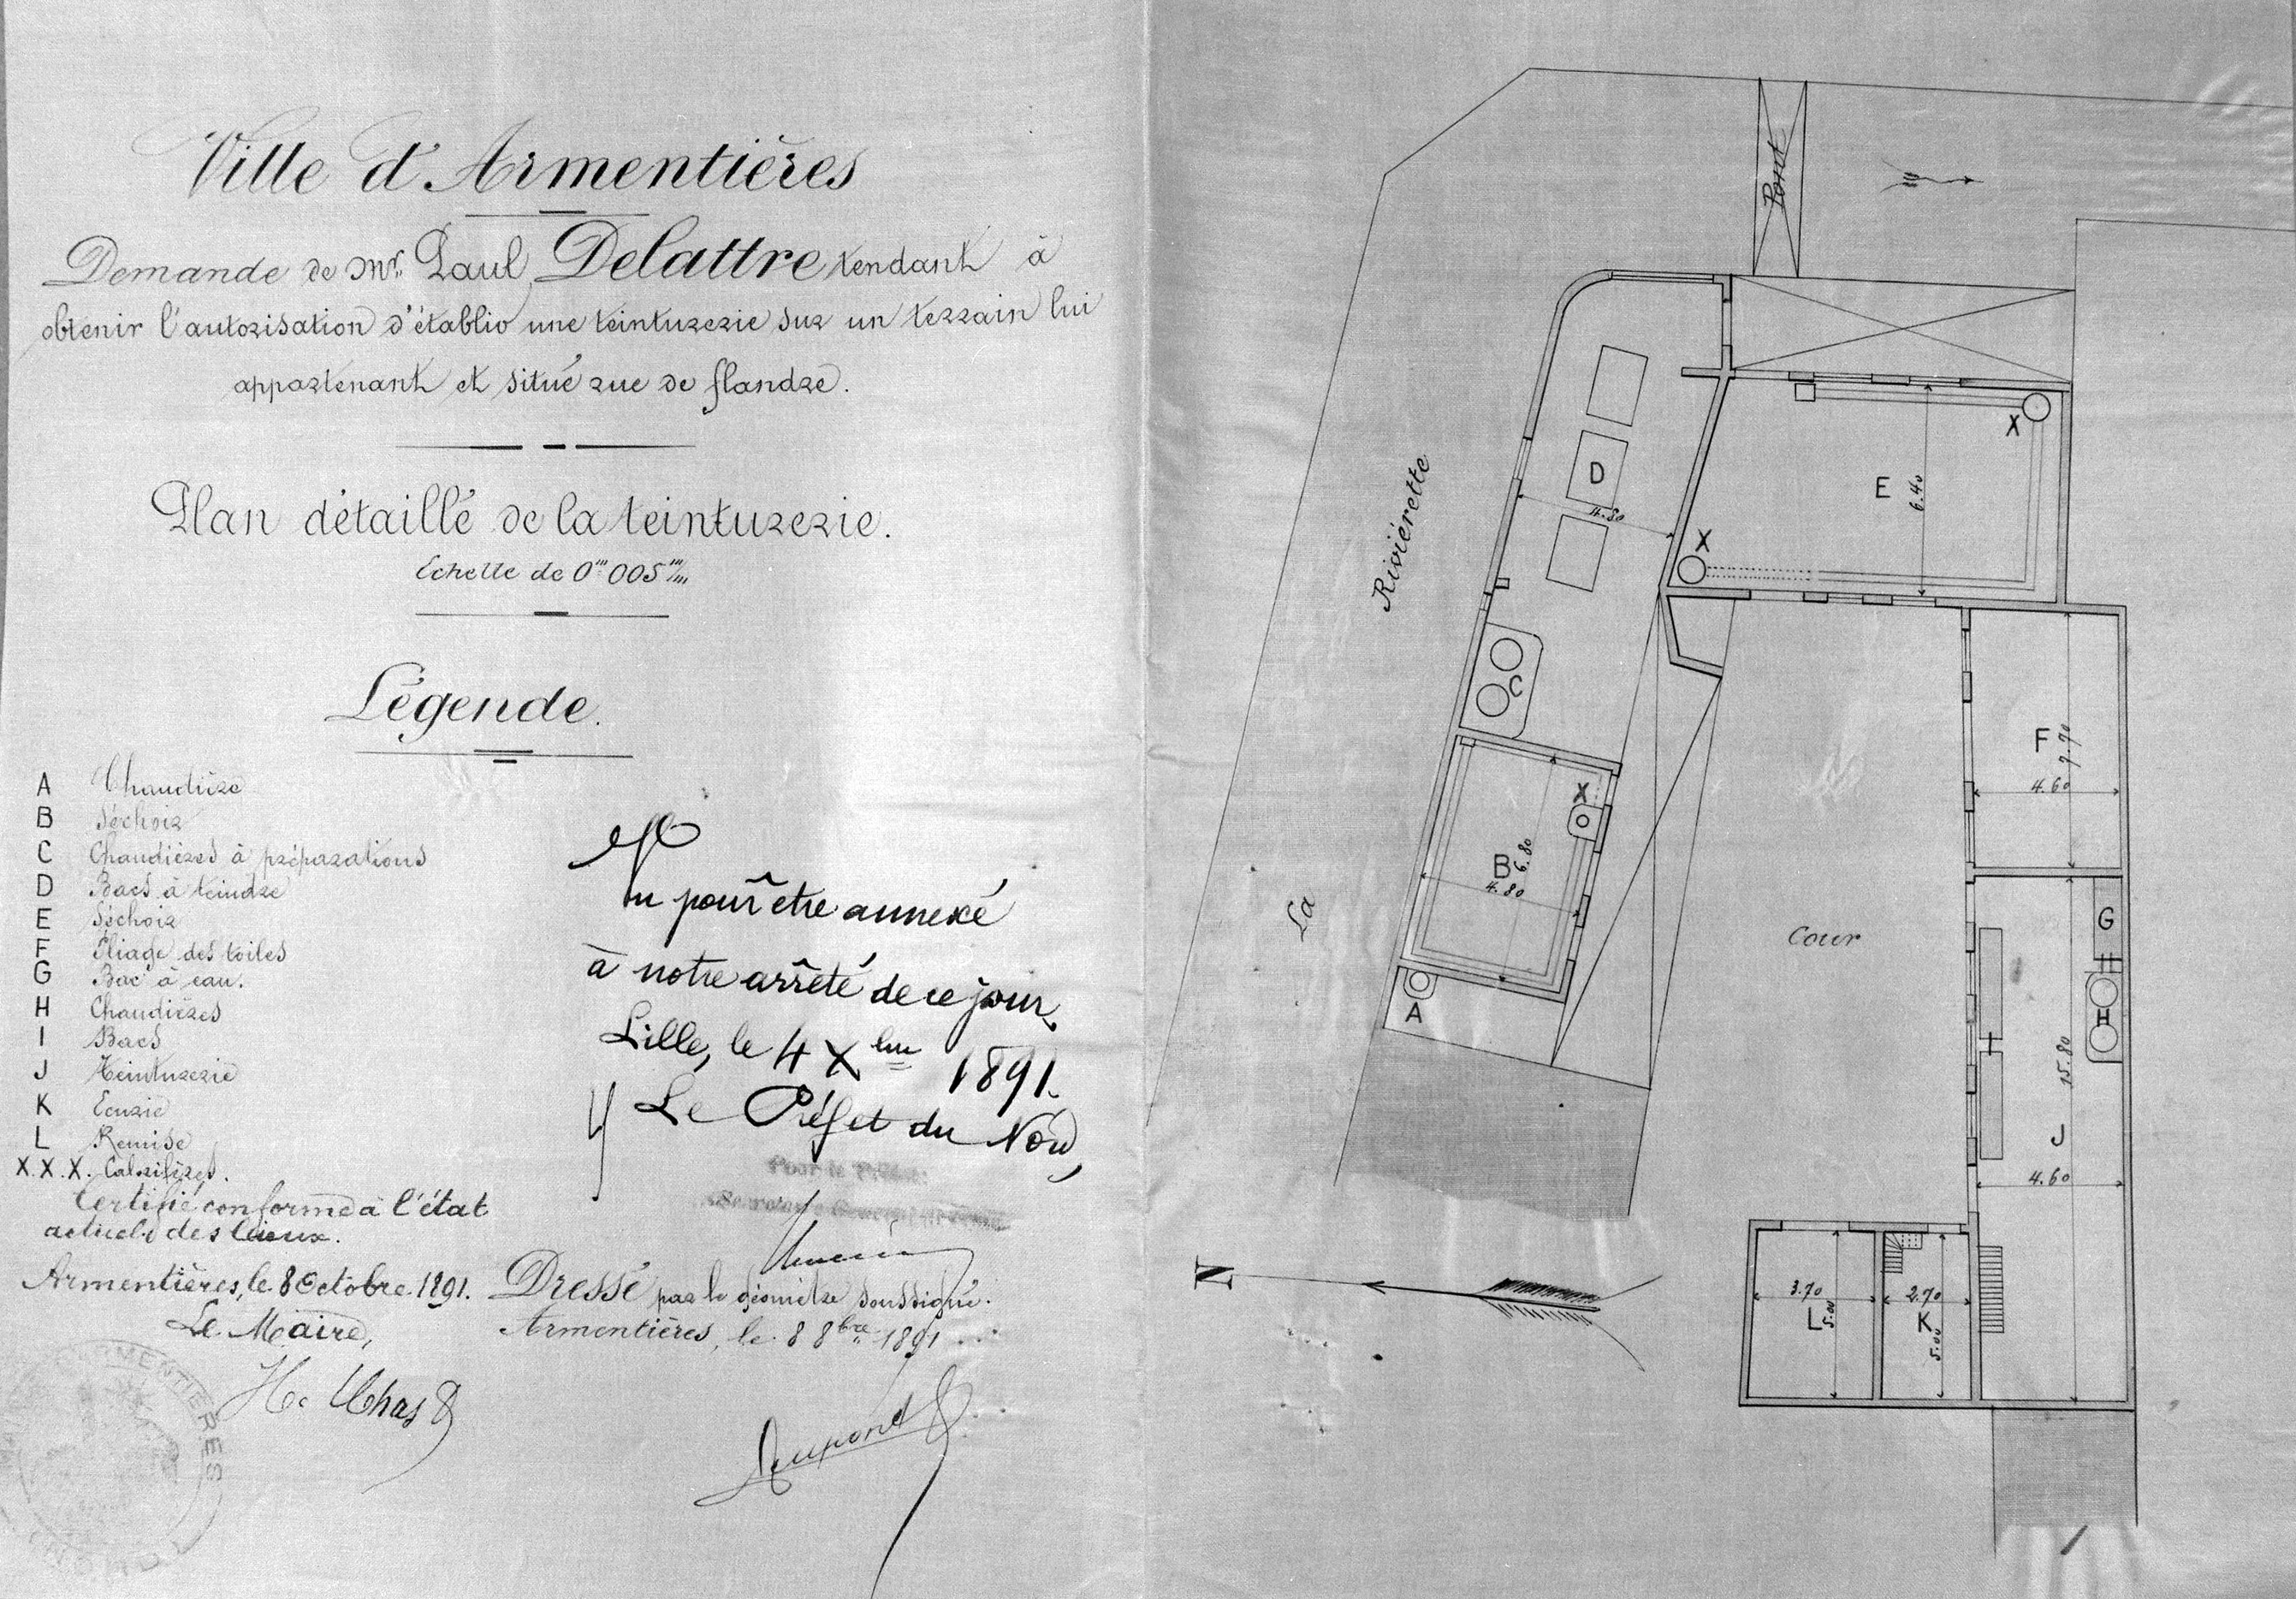 Ville d'Armentières
Demande de Mr. Paul Delattre tendant à
obtenir l'autorisation d'établir une teinturerie sur un terrain lui
appartenant et situé rue de flandre.
Plan détaillé de la teinturerie.
Echelle de 0m005m/m
Légende.
A Chaudière
B Séchoir
C Chaudières à préparations
D Bacs à teindre
E Séchoir
F Pliage des toiles
G Bac à eau.
H Chaudières
I Bacs
J Teinturerie
K Ecurie
L Remise
X.X.X. Calorifères.
Certifié conforme à l'état
actuel des lieux.
Armentières, le 8 Octobre 1891.
Le Maire,
Vu pour être annexé
à notre arrêté de ce jour,
Lille, le 4 Xbre 1891.
Le Préfet du Nord,
Pour le Préfet:
Dressé par le géomètre soussigné.
Armentières, le 8 8bre 1891
Dupont
ARMENTIERES
Pont
La Rivièrette
D
4.80
E
6.40
X
X
C
X
B
6.80
4.80
A
F
7.70
4.60
Cour
G
H
I
15.80
J
4.60
3.70
L
5.00
2.70
K
5.00
N